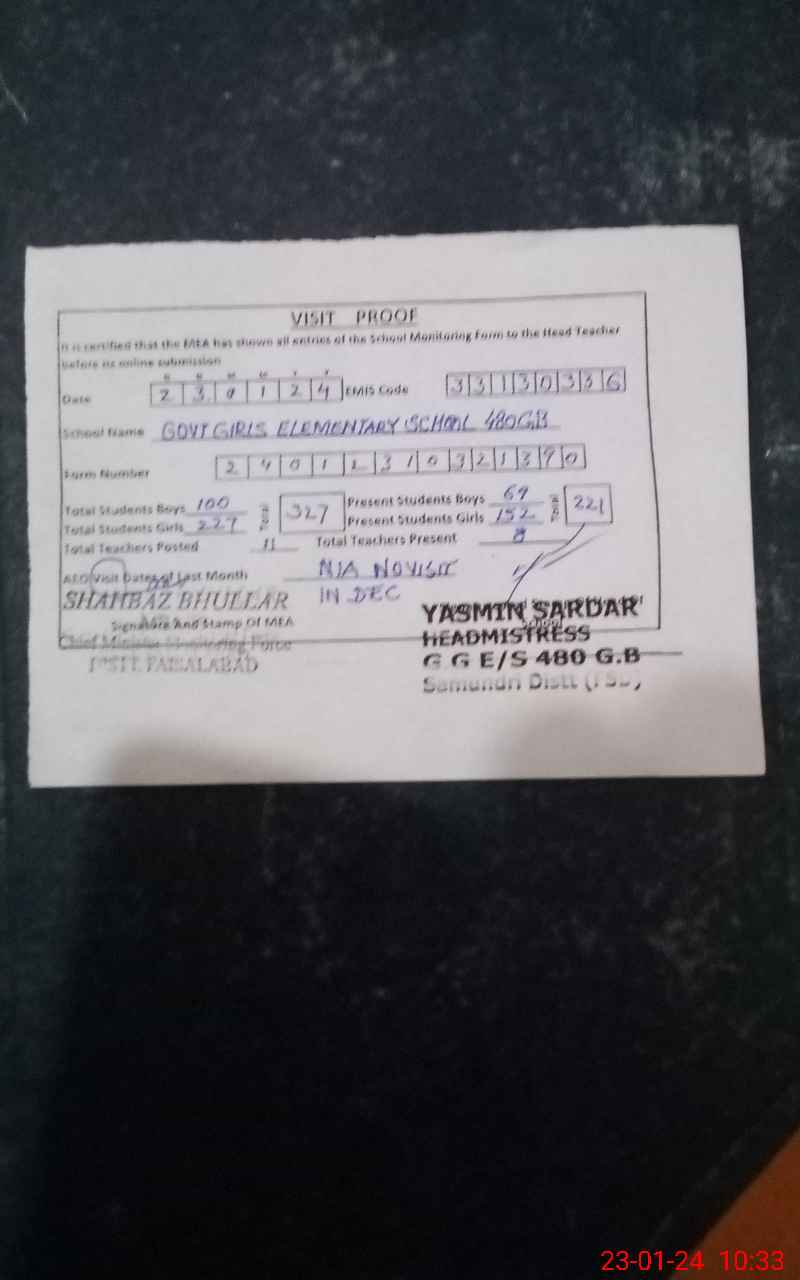 VISIT PROOF
It is certified that the MEA has shown all entries of the School Monitoring Form to the Head Teacher
before its online submission
Date 2 3 0 1 2 4 EMIS Code 3 3 1 3 0 3 3 6
School Name GOVT GIRLS ELEMENTARY SCHOOL 480 G.B
Form Number
Total Students Boys 100 Total 327 Present Students Boys 69 Total 221
Total Students Girls 227 Present Students Girls 152
Total Teachers Posted 11 Total Teachers Present 8
AEO Visit Dates of Last Month N/A NO VISIT
IN DEC
SHAHBAZ BHULLAR
Signature And Stamp Of MEA
Chief Minister Monitoring Force
DISTT. FAISALABAD
YASMIN SARDAR
HEADMISTRESS
G G E/S 480 G.B
Samundri Distt (FSD)
23-01-24 10:33